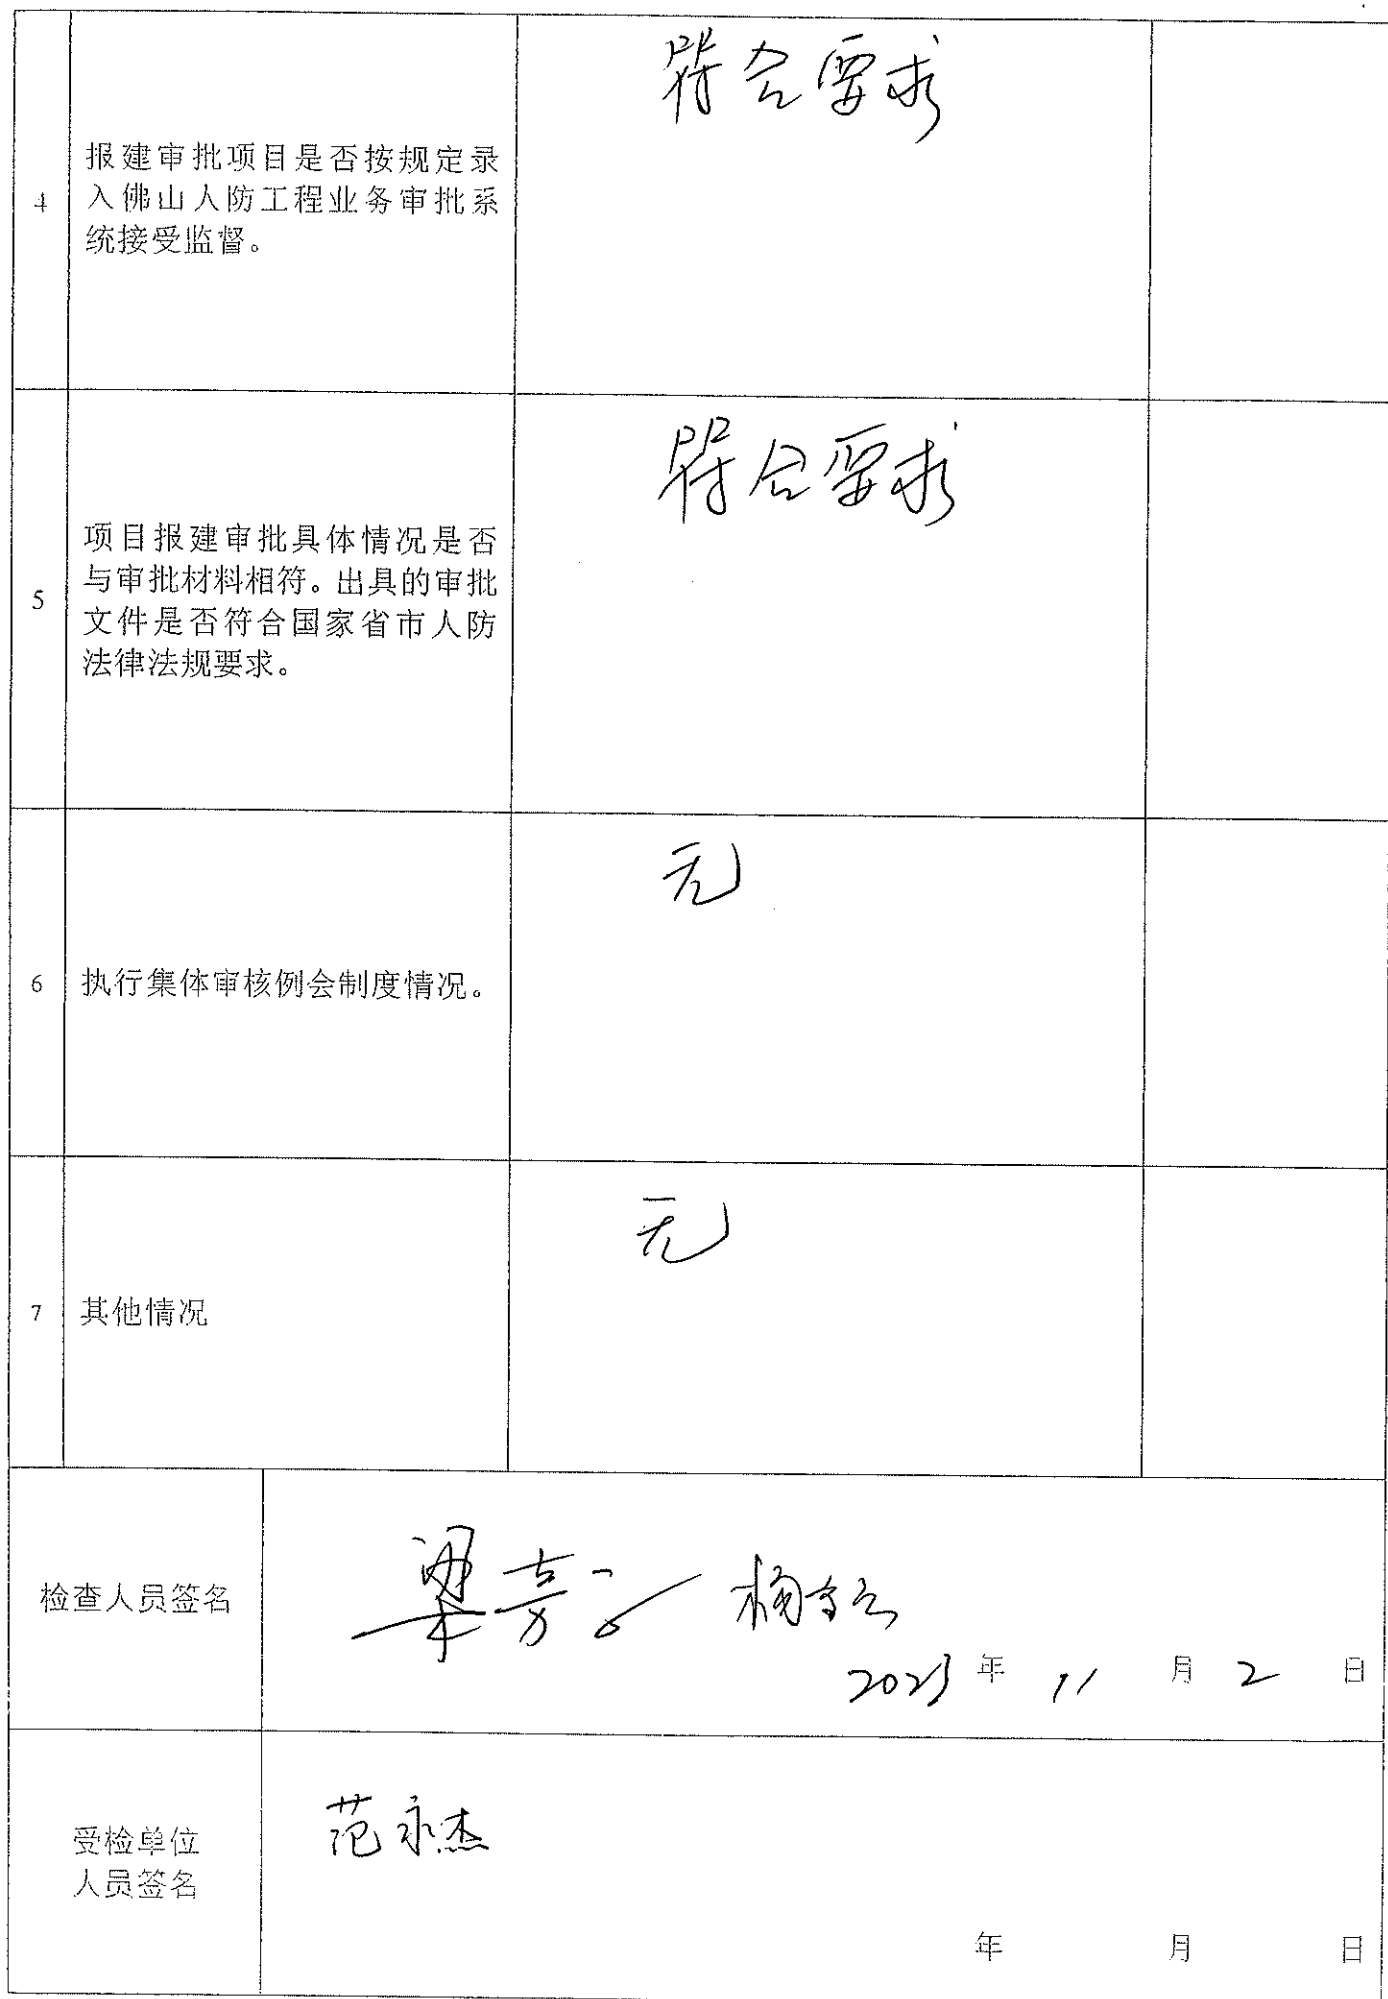 符合要求
报建审批项目是否按规定录
4
入佛山人防工程业务审批系
统接受监督。
符合要求
项目报建审批具体情况是否
与审批材料相符。出具的审批
5
文件是否符合国家省市人防
法律法规要求。
无
6 执行集体审核例会制度情况。
无
7 其他情况
检查人员签名
梁
2023 年 11 月 2 日
受检单位
人员签名
范永杰
年 月 日